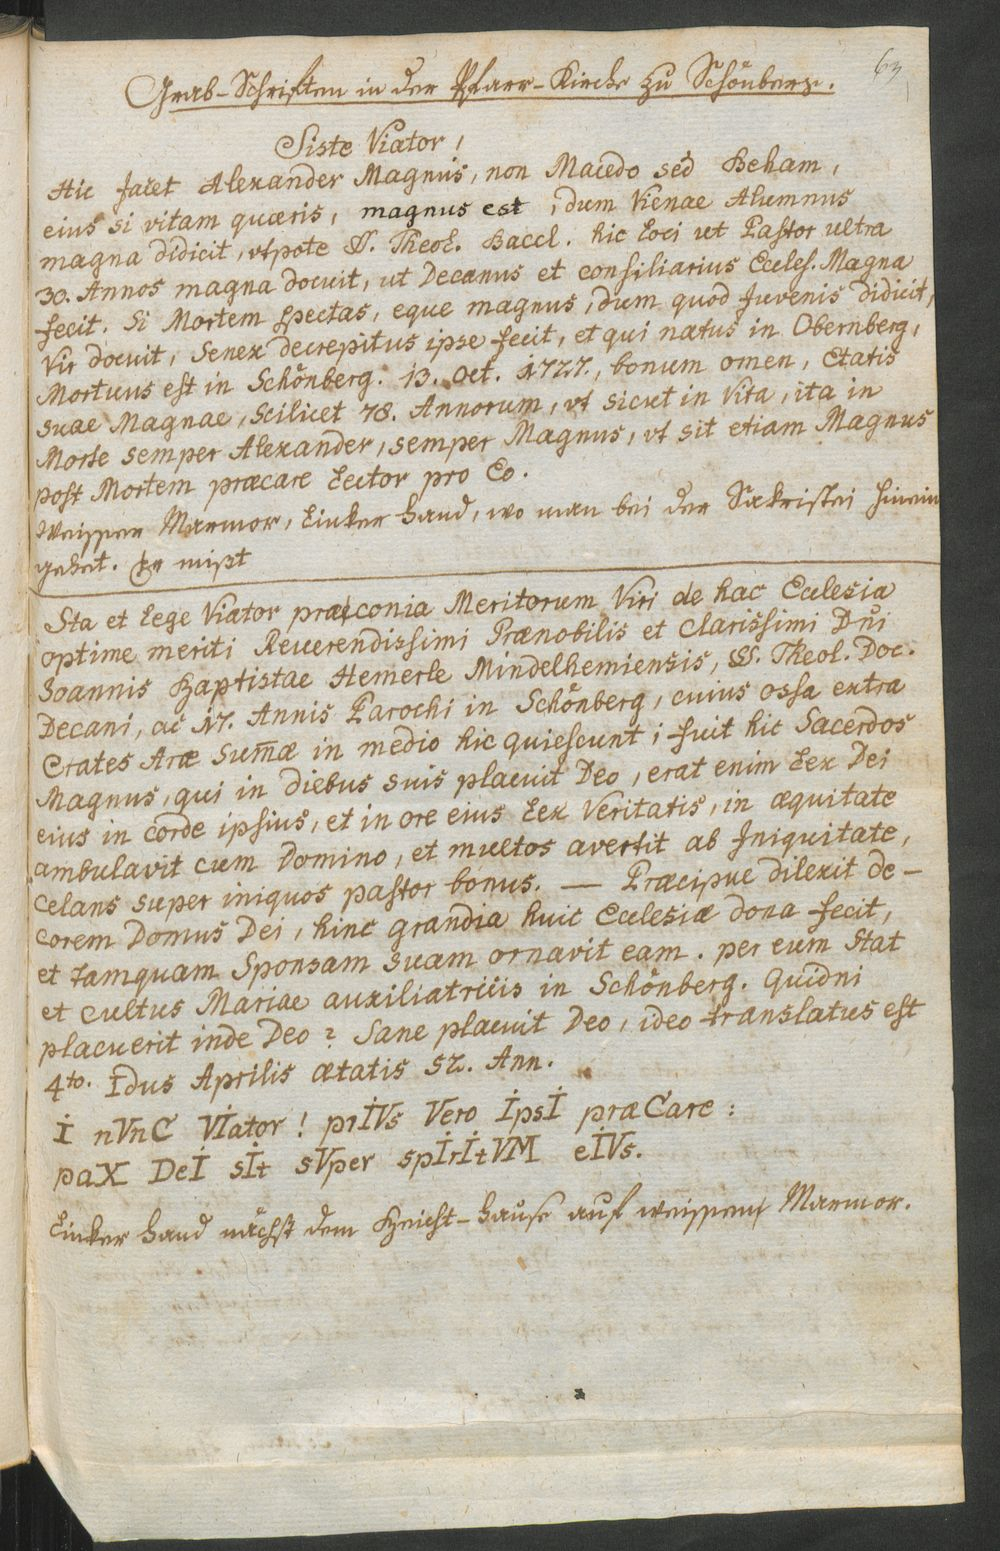 63
Grab-Schriften in der Pfarr-Kirche zu Schönberg.
Siste Viator!
Hic jacet Alexander Magnus, non Macedo sed Beham,
eius si vitam quæris, magnus est, dum Vienae Alumnus
magna didicit, utpote SS. Theol. Baccl. hic loci ut Pastor ultra
30. Annos magna docuit, ut Decanus et consiliarius Eccles. Magna
fecit. Si Mortem spectas, eque magnus, dum quod Juvenis didicit,
Vir docuit, Senex decrepitus ipse fecit, et qui natus in Obernberg,
Mortuus est in Schönberg. 13. Oct. 1727., bonum omen, Etatis
suae Magnae, Scilicet 78. Annorum, ut sicut in Vita, ita in
Morte semper Alexander, semper Magnus, ut sit etiam Magnus
post Mortem præcare Lector pro Eo.
Weisser Marmor, Linker Hand, wo man bei der Sakristei hinein
gehet.
Sta et Lege Viator præconia Meritorum Viri de hac Ecclesia
optime meriti Reverendissimi Prænobilis et Clarissimi Dn̄i
Joannis Baptistae Hemerle Mindelhemiensis, SS. Theol. Doc.
Decani, ac 17. Annis Parochi in Schönberg, cuius ossa extra
Crates Aræ Sum̄æ in medio hic quiescunt; fuit hic Sacerdos
Magnus, qui in diebus suis placuit Deo, erat enim Lex Dei
eius in corde ipsius, et in ore eius Lex Veritatis, in æquitate
ambulavit cum Domino, et multos avertit ab Iniquitate,
celans super iniquos pastor bonus. — Præcipue dilexit de-
corem Domus Dei, hinc grandia huic Ecclesiæ dona fecit,
et tamquam Sponsam suam ornavit eam. per eum Stat
et cultus Mariae auxiliatricis in Schönberg. Quidni
placuerit inde Deo? Sane placuit Deo, ideo translatus est
4to. Idus Aprilis ætatis 52. Ann.
I nVnC VIator! prIVs Vero IpsI præCare:
paX DeI sIt sVper spIrItVM eIVs.
Linker Hand nächst dem Beicht-Hause auf weissem Marmor.